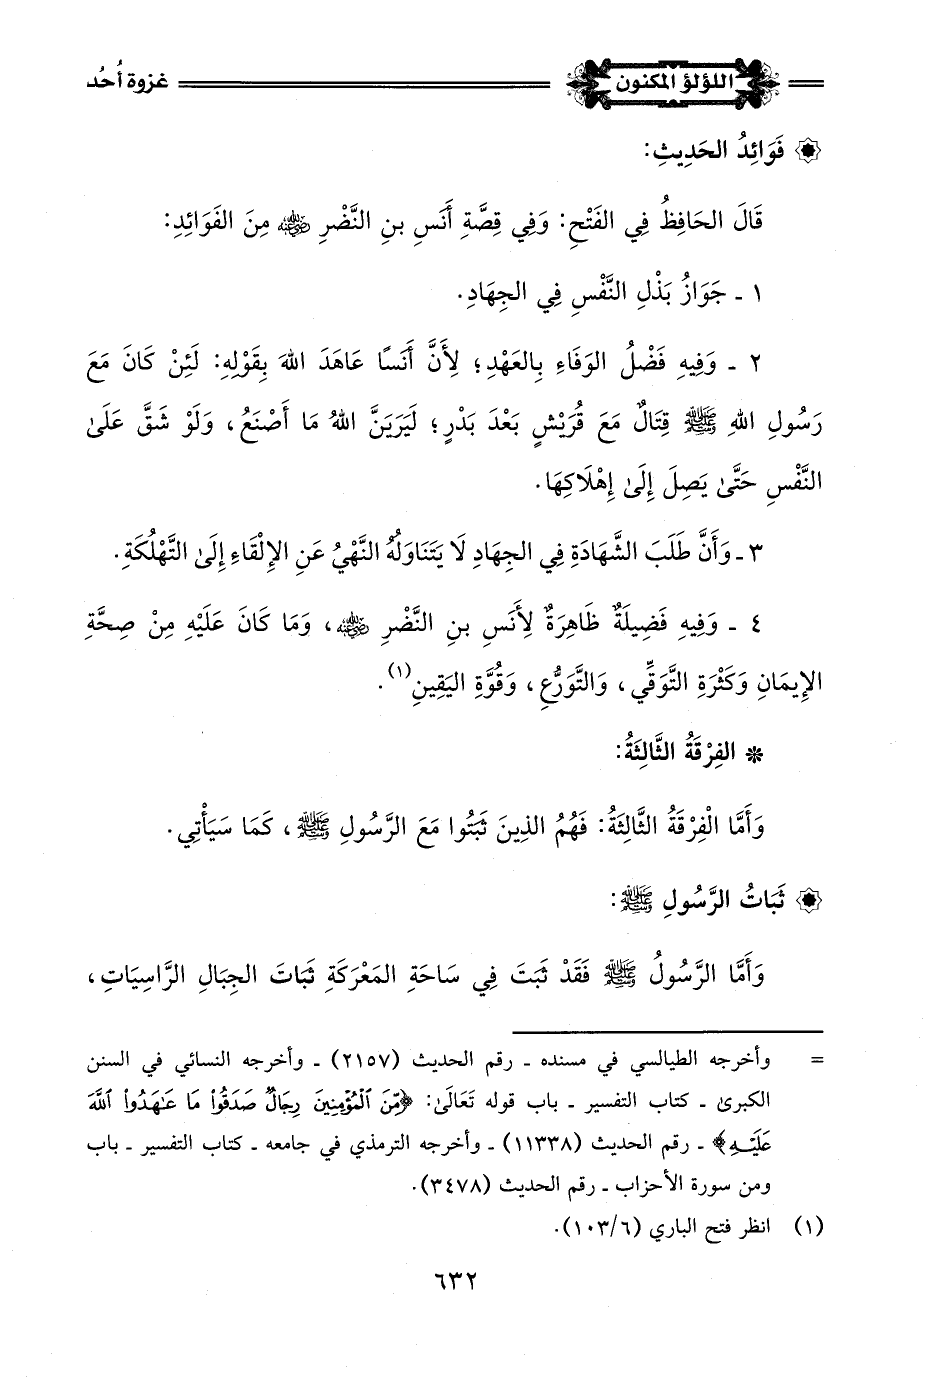 اللؤلؤ المكنون
غزوة أُحُد
فَوَائِدُ الحَدِيثِ:
قَالَ الحَافِظُ فِي الفَتْحِ: وَفِي قِصَّةِ أَنَسِ بنِ النَّضْرِ رضي الله عنه مِنَ الفَوَائِدِ:
١ ـ جَوَازُ بَذْلِ النَّفْسِ فِي الجِهَادِ.
٢ ـ وَفِيهِ فَضْلُ الوَفَاءِ بِالعَهْدِ؛ لِأَنَّ أَنَسًا عَاهَدَ اللهَ بِقَوْلِهِ: لَئِنْ كَانَ مَعَ
رَسُولِ اللهِ ﷺ قِتَالٌ مَعَ قُرَيْشٍ بَعْدَ بَدْرٍ؛ لَيَرَيَنَّ اللهُ مَا أَصْنَعُ، وَلَوْ شَقَّ عَلَىٰ
النَّفْسِ حَتَّىٰ يَصِلَ إِلَىٰ إِهْلَاكِهَا.
٣ ـ وَأَنَّ طَلَبَ الشَّهَادَةِ فِي الجِهَادِ لَا يَتَنَاوَلُهُ النَّهْيُ عَنِ الإِلْقَاءِ إِلَىٰ التَّهْلُكَةِ.
٤ ـ وَفِيهِ فَضِيلَةٌ ظَاهِرَةٌ لِأَنَسِ بنِ النَّضْرِ رضي الله عنه، وَمَا كَانَ عَلَيْهِ مِنْ صِحَّةِ
الإِيمَانِ وَكَثْرَةِ التَّوَقِّي، وَالتَّوَرُّعِ، وَقُوَّةِ اليَقِينِ(١).
* الفِرْقَةُ الثَّالِثَةُ:
وَأَمَّا الْفِرْقَةُ الثَّالِثَةُ: فَهُمُ الذِينَ ثَبَتُوا مَعَ الرَّسُولِ ﷺ، كَمَا سَيَأْتِي.
ثَبَاتُ الرَّسُولِ ﷺ:
وَأَمَّا الرَّسُولُ ﷺ فَقَدْ ثَبَتَ فِي سَاحَةِ المَعْرَكَةِ ثَبَاتَ الجِبَالِ الرَّاسِيَاتِ،
= وأخرجه الطيالسي في مسنده ـ رقم الحديث (٢١٥٧) ـ وأخرجه النسائي في السنن
الكبرىٰ ـ كتاب التفسير ـ باب قوله تَعَالَىٰ: ﴿مِّنَ ٱلْمُؤْمِنِينَ رِجَالٌ صَدَقُوا۟ مَا عَٰهَدُوا۟ ٱللَّهَ
عَلَيْهِ﴾ ـ رقم الحديث (١١٣٣٨) ـ وأخرجه الترمذي في جامعه ـ كتاب التفسير ـ باب
ومن سورة الأحزاب ـ رقم الحديث (٣٤٧٨).
(١) انظر فتح الباري (١٠٣/٦).
٦٣٢